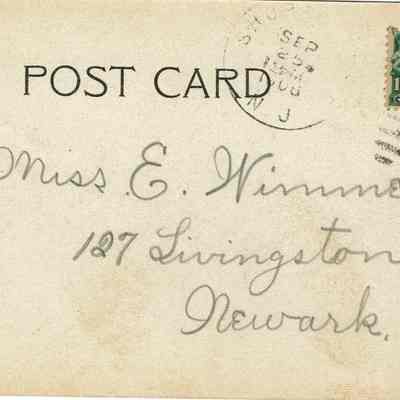 POST CARD
SEP
25
N J
Miss E. Wimme
127 Livingston
Newark,